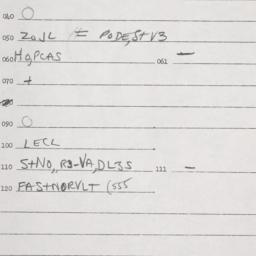 040 O
050 ZOJL = PODE,S+V3
060 HQPCAS 061 —
070 +
080
090 O
100 LECL
110 S+NO,,R3-VA,DL3S 111 —
120 FAS+NORVLT (555